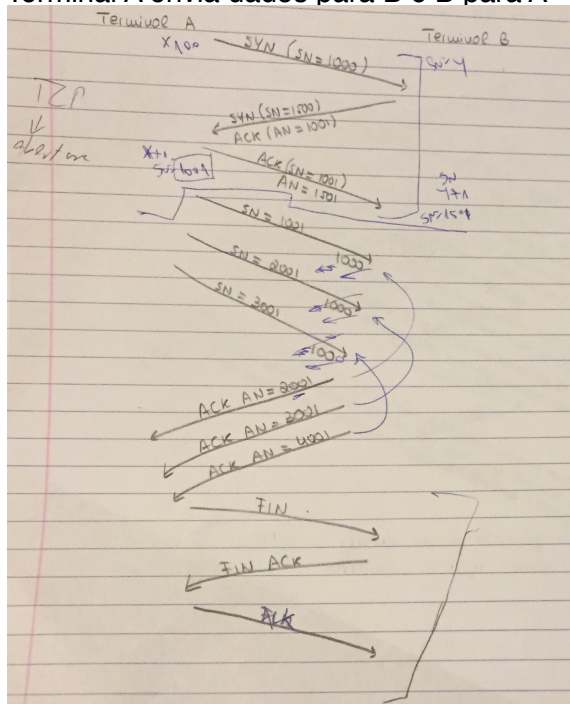 Terminal A envia dados para B e B para A
Terminal A
Terminal B
X
SYN (SN=1000)
SN=Y
SYN (SN=1500)
ACK (AN=1001)
TCP
↓
abertura
X+1
SN=1001
ACK (SN=1001)
AN=1501
SN
Y+1
SN=1501
SN=1001
1000
SN=2001
1000
SN=3001
1000
ACK AN=2001
ACK AN=3001
ACK AN=4001
FIN
FIN ACK
ACK